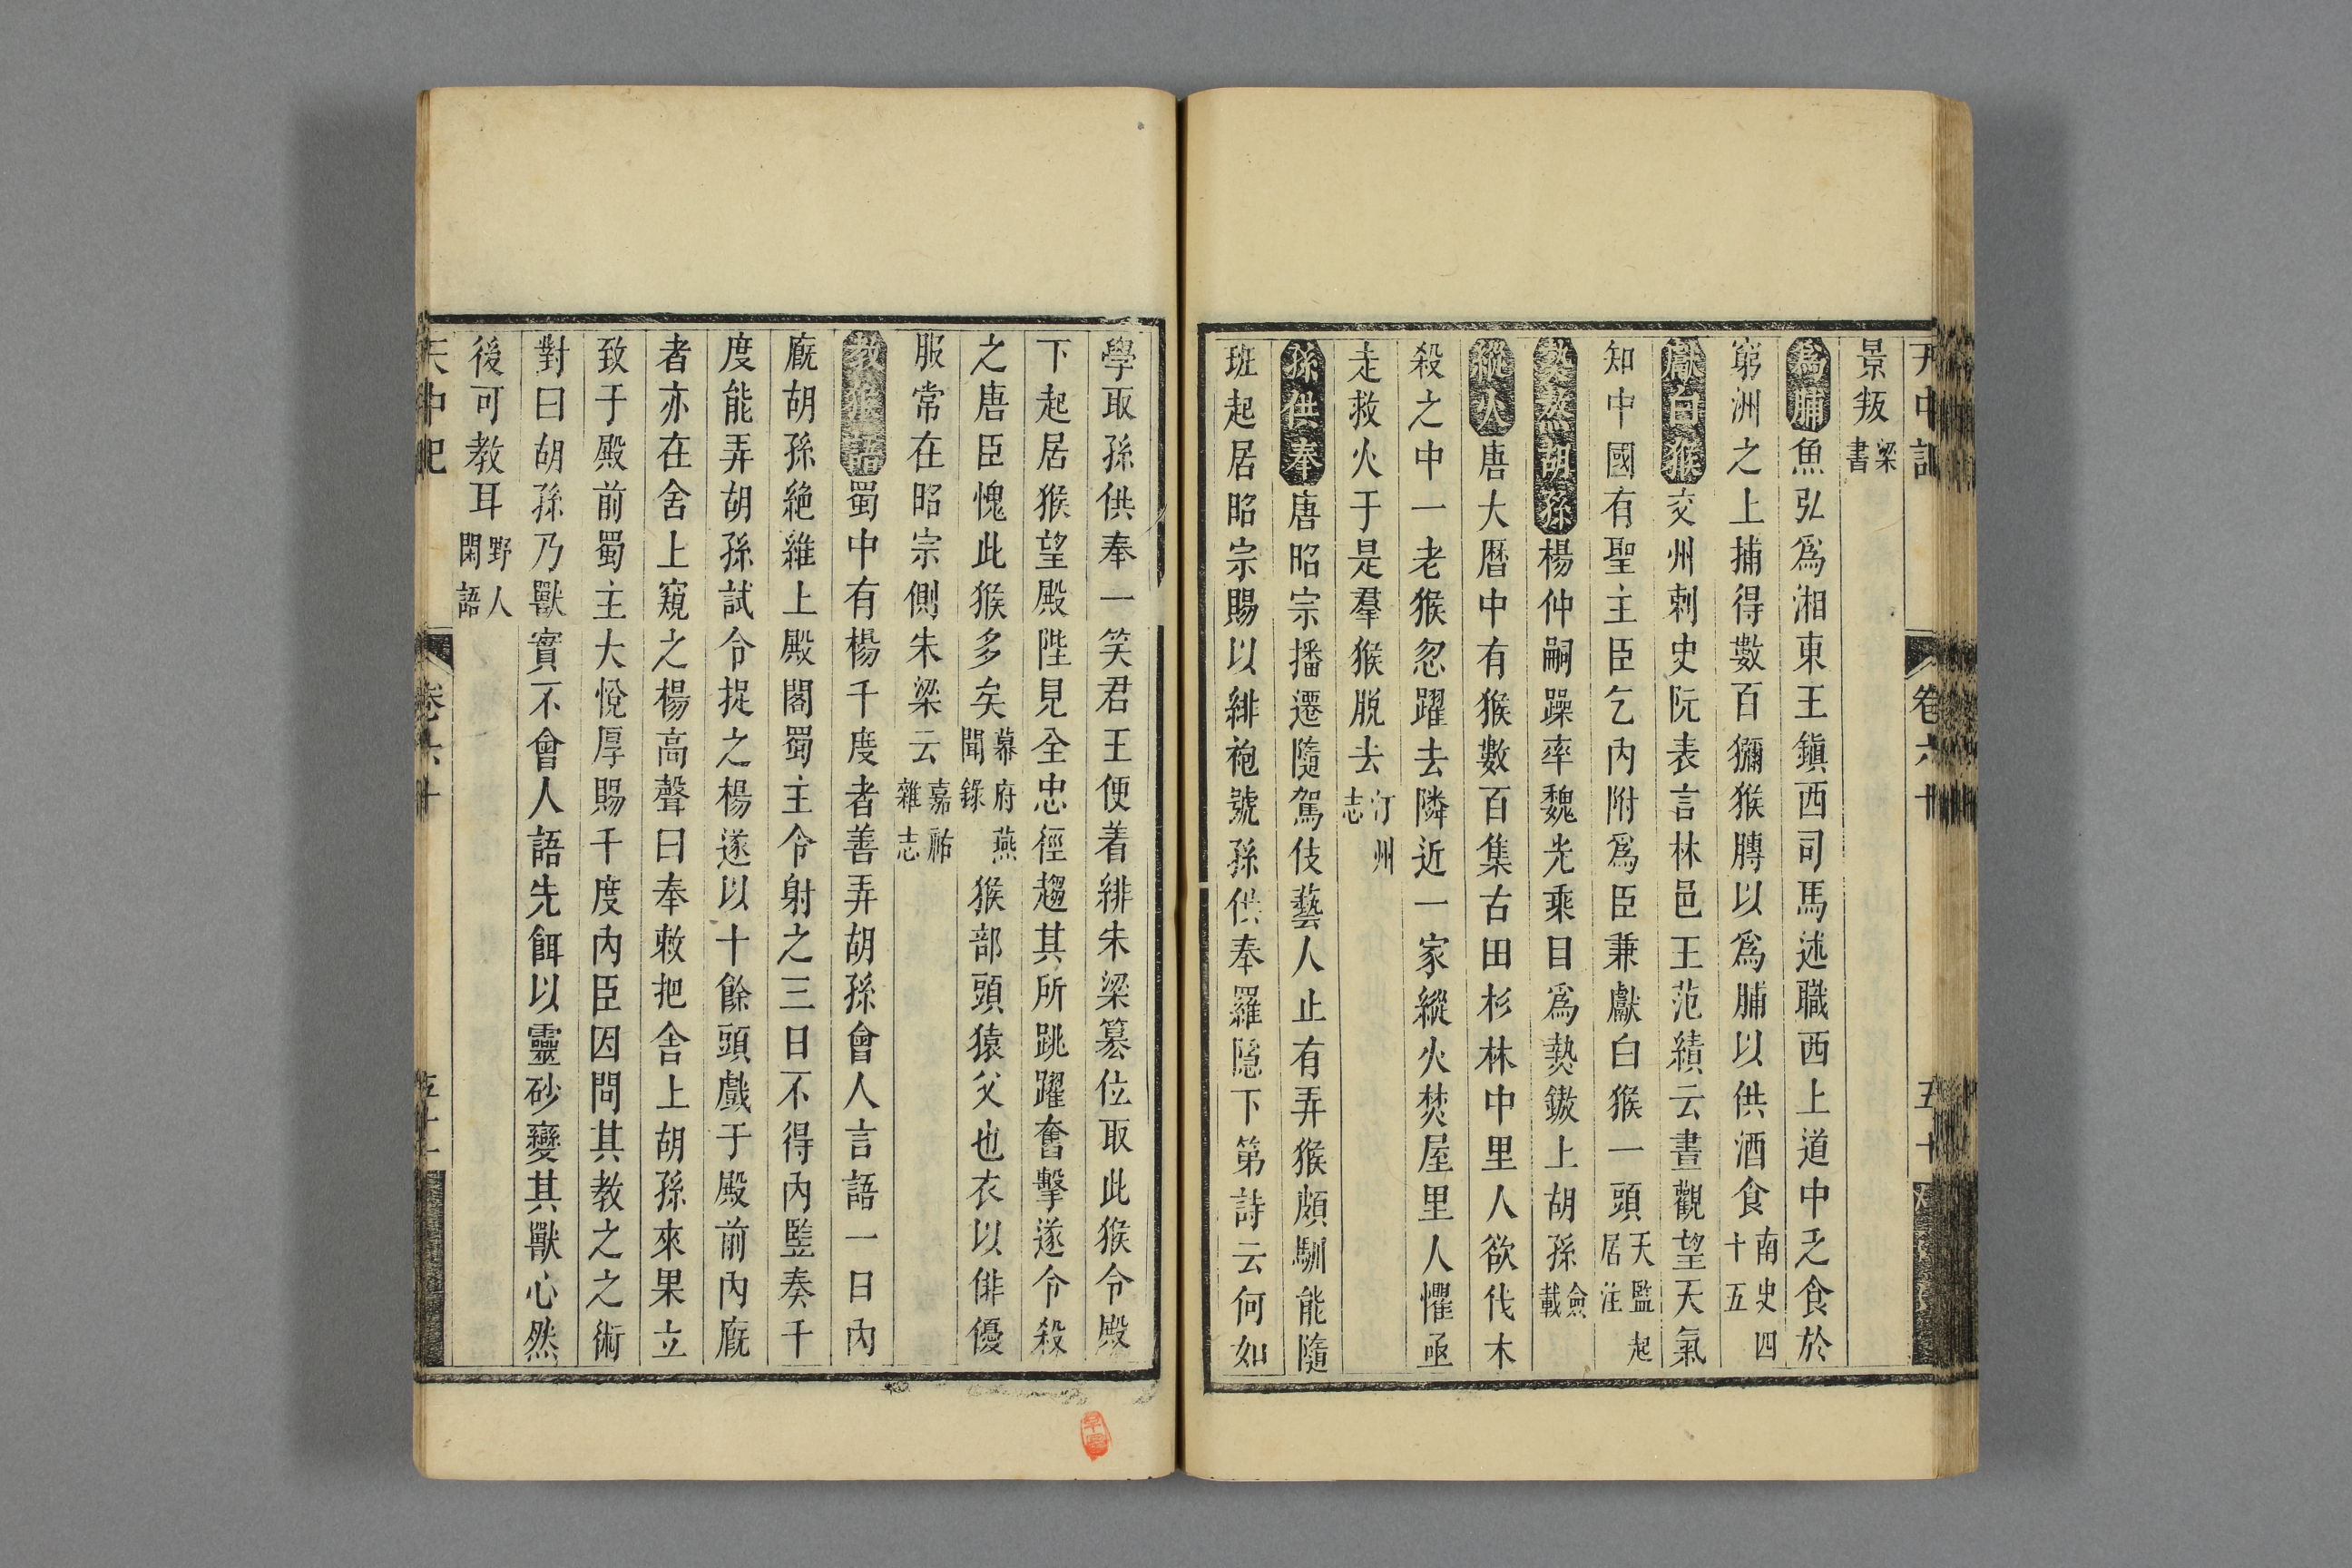 天中記
卷六十
五十
景叛梁書
爲脯魚弘爲湘東王鎭西司馬述職西上道中乏食於
窮洲之上捕得數百獼猴膊以爲脯以供酒食南史四十五
獻白猴交州刺史阮表言林邑王范績云晝觀望天氣
知中國有聖主臣乞內附爲臣兼獻白猴一頭天監起居注
熱熬胡孫楊仲嗣躁率魏光乘目爲熱鏊上胡孫僉載
縱火唐大曆中有猴數百集古田杉林中里人欲伐木
殺之中一老猴忽躍去隣近一家縱火焚屋里人懼亟
走救火于是羣猴脫去汀州志
孫供奉唐昭宗播遷隨駕伎藝人止有弄猴頗馴能隨
班起居昭宗賜以緋袍號孫供奉羅隱下第詩云何如
學取孫供奉一笑君王便着緋朱梁簒位取此猴令殿
下起居猴望殿陛見全忠徑趨其所跳躍奮擊遂令殺
之唐臣愧此猴多矣幕府燕聞錄猴部頭猿父也衣以俳優
服常在昭宗側朱梁云嘉祐雜志
教猴語蜀中有楊千度者善弄胡孫會人言語一日內
廐胡孫絶維上殿閣蜀主令射之三日不得內監奏千
度能弄胡孫試令捉之楊遂以十餘頭戲于殿前內廐
者亦在舍上窺之楊高聲曰奉敕把舍上胡孫來果立
致于殿前蜀主大悅厚賜千度內臣因問其教之之術
對曰胡孫乃獸實不會人語先餌以靈砂變其獸心然
後可教耳野人閑語
天中記
卷六十
五十一